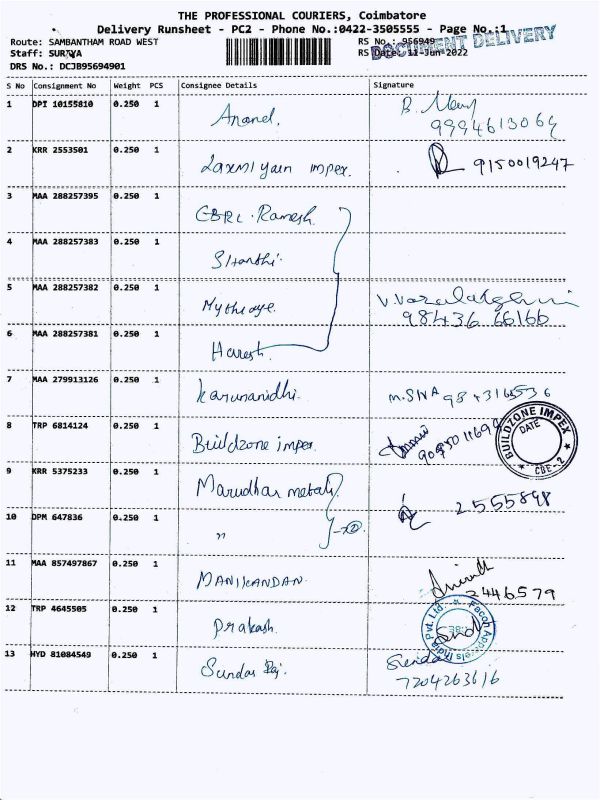 THE PROFESSIONAL COURIERS, Coimbatore
Delivery Runsheet - PC2 - Phone No.:0422-3505555 - Page No.:1
Route: SAMBANTHAM ROAD WEST RS No.: 956949
DOCUMENT DELIVERY
Staff: SURYA RS Date: 11-Jun-2022
DRS No.: DCJB95694901
S No Consignment No Weight PCS Consignee Details Signature
1 DPI 10155810 0.250 1 Anand.
9994613064
2 KRR 2553501 0.250 1 Laxmi yarn impex. 9150019247
3 MAA 288257395 0.250 1 Ramesh
4 MAA 288257383 0.250 1 Shanthi.
5 MAA 288257382 0.250 1
98436 66166
6 MAA 288257381 0.250 1 Haresh
7 MAA 279913126 0.250 1 Karunanidhi.
8 TRP 6814124 0.250 1 Buildzone impex
BUILDZONE IMPEX
DATE
CBE-2
9 KRR 5375233 0.250 1 Marudhar metals
2555898
10 DPM 647836 0.250 1 "
11 MAA 857497867 0.250 1 MANIKANDAN.
2446579
12 TRP 4645505 0.250 1 Prakash.
13 HYD 81084549 0.250 1 Sundar Raj.
7204263616